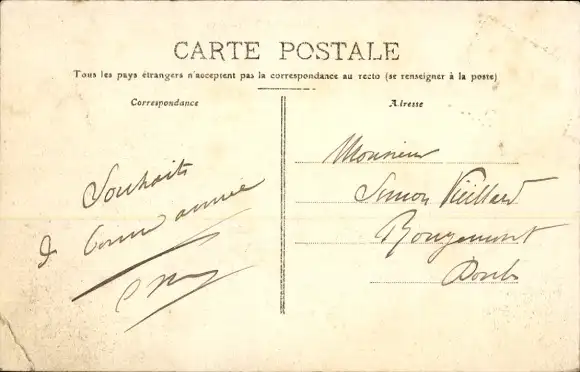 CARTE POSTALE
Tous les pays étrangers n'acceptent pas la correspondance au recto (se renseigner à la poste)
Correspondance
Adresse
Souhaits
de bonne année
Monsieur
Simon Vieillard
Rougemont
Doubs